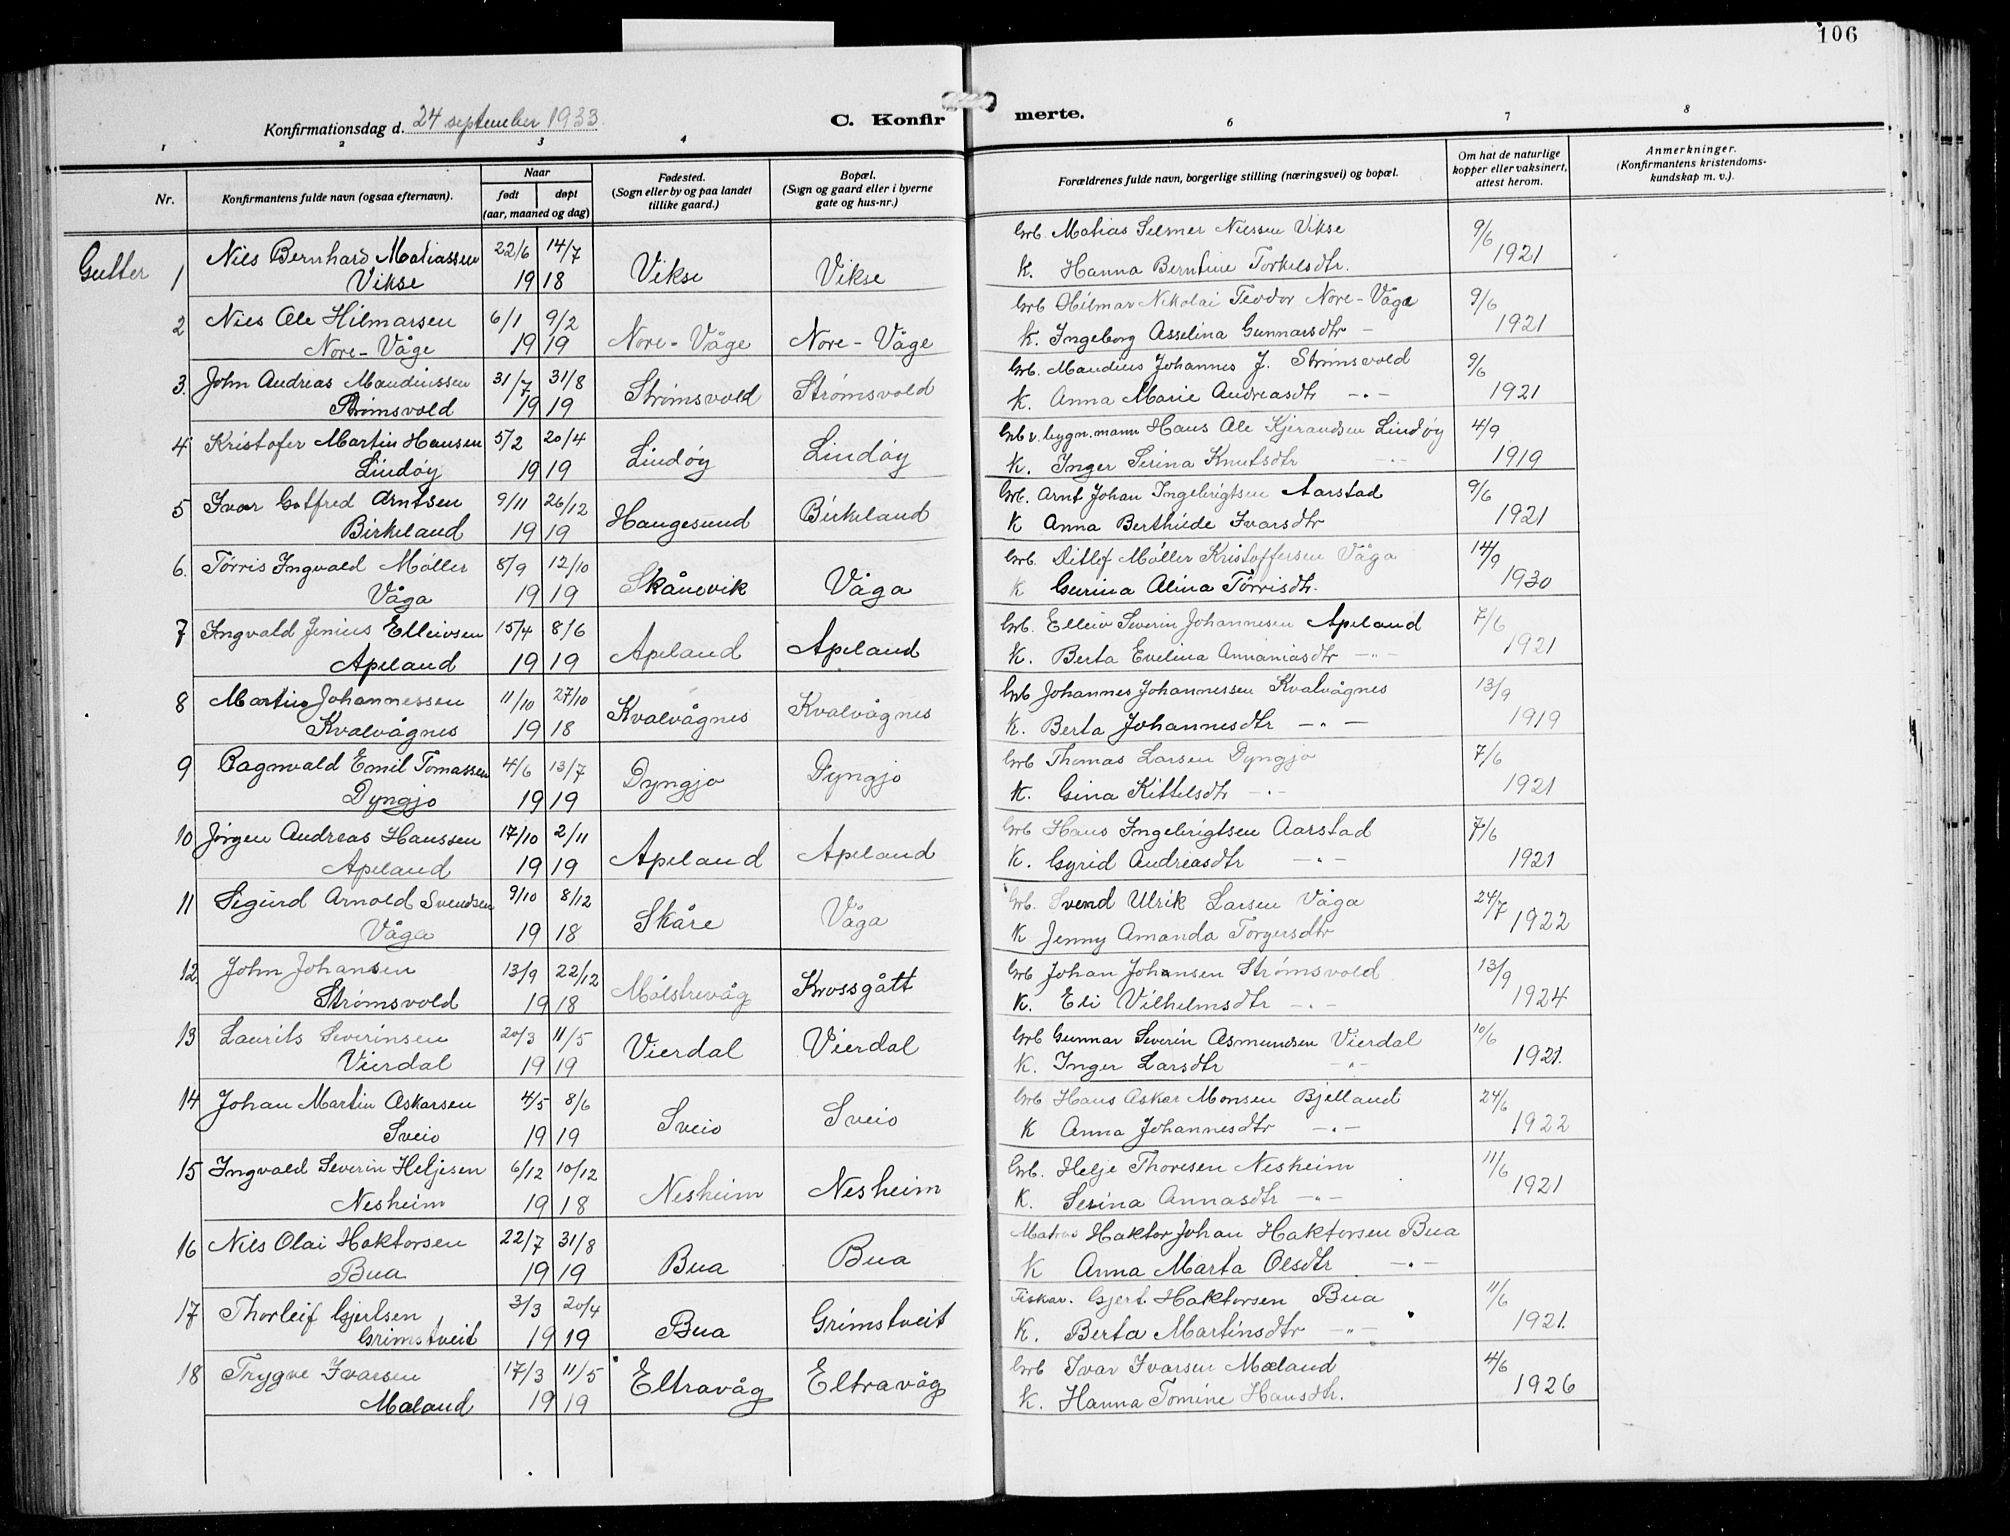 106
Konfirmationsdag d. 24 september 1933.
C. Konfirmerte.
1 2 3 4 6 7 8
Nr.
Konfirmantens fulde navn (ogsaa efternavn).
Naar
født døpt
(aar, maaned og dag)
Fødested.
(Sogn eller by og paa landet
tillike gaard.)
Bopæl.
(Sogn og gaard eller i byerne
gate og hus-nr.)
Forældrenes fulde navn, borgerlige stilling (næringsvei) og bopæl.
Om hat de naturlige
kopper eller vaksinert,
attest herom.
Anmerkninger.
(Konfirmantens kristendoms-
kundskap m. v.).
Gutter
1 Nils Bernhard Matiassen 22/6 14/7 Vikse Vikse Grb. Matias Selmer Nilssen Vikse 9/6
Vikse 19 18 K. Hanna Berntine Torkelsdtr. 1921
2 Nils Ole Hilmarsen 6/1 9/2 Nore-Våge Nore-Våge Grb Hilmar Nikolai Teodor Nore-Våge 9/6
Nore-Våge 19 19 K. Ingeborg Asselina Gunnarsdtr - 1921
3. John Andreas Maudinssen 31/7 31/8 Strømsvold Strømsvold Grb. Maudius Johannes J. Strømsvold 9/6
Strømsvold 19 19 K. Anna Marie Andreasdtr -"- 1921
4 Kristofer Martin Hansen 5/2 20/4 Lindøy Lindøy Grb v. bygn.mann Hans Ole Kjerandsen Lindøy 4/9
Lindøy 19 19 K. Inger Serina Knutsdtr -"- 1919
5 Ivar Gotfred Arntsen 9/11 26/12 Haugesund Birkeland Grb. Arnt Johan Ingebrigtsen Aarstad 9/6
Birkeland 19 19 K Anna Berthilde Ivarsdtr 1921
6. Tørris Ingvald Møller 8/9 12/10 Skånevik Våga Grb. Ditlef Møller Kristoffersen Våga 14/9
Våga 19 19 K Gurina Alina Tørrisdtr. 1930
7 Ingvald Jenius Elleivsen 15/4 8/6 Apeland Apeland Grb. Elleiv Severin Johannesen Apeland 7/6
Apeland 19 19 K. Berta Evelina Annaniasdtr -"- 1921
8 Martin Johannessen 11/10 27/10 Kvalvågnes Kvalvågnes Grb Johannes Johannessen Kvalvågnes 13/9
Kvalvågnes 19 18 K. Berta Johannesdtr -"- 1919
9 Ragnvald Emil Tomassen 4/6 13/7 Dyngjo Dyngjo Grb Thomas Larsen Dyngjo 7/6
Dyngjo 19 19 K. Gina Kittelsdtr -"- 1921
10 Jørgen Andreas Hanssen 17/10 2/11 Apeland Apeland Grb Hans Ingebrigtsen Aarstad 7/6
Apeland 19 19 K. Gyrid Andreasdtr -"- 1921
11 Sigurd Arnold Svendsen 9/10 8/12 Skåre Våga Grb. Svend Ulrik Larsen Våga 24/7
Våga 19 18 K Jenny Amanda Torgersdtr 1922
12. John Johansen 13/9 22/12 Mølstrevåg Krossgått Grb Johan Johansen Strømsvold 13/9
Strømsvold 19 18 K. Eli Vilhelmsdtr -"- 1924
13 Laurits Severinsen 20/3 11/5 Vierdal Vierdal Grb Gunnar Severin Asmundsen Vierdal 10/6
Vierdal 19 19 K. Inger Larsdtr -"- 1921.
14 Johan Martin Askarsen 4/5 8/6 Sveio Sveio Grb Hans Askar Monsen Bjelland 24/6
Sveio 19 19 K Anna Johannesdtr -"- 1922
15 Ingvald Severin Heljesen 6/12 10/12 Nesheim Nesheim Grb. Helje Thoresen Nesheim 11/6
Nesheim 19 18 K. Serina Annasdtr -"- 1921
16 Nils Olai Haktorsen 22/7 31/8 Bua Bua Matros Haktor Johan Haktorsen Bua
Bua 19 19 K Anna Marta Olsdtr -"-
17 Thorleif Gjertsen 3/3 20/4 Bua Grimstveit Fiskar. Gjert Haktorsen Bua 11/6
Grimstveit 19 19 K. Berta Martinsdtr -"- 1921.
18 Trygve Ivarsen 17/3 11/5 Eltravåg Eltravåg Grb Ivar Ivarsen Mæland 4/6
Mæland 19 19 K. Hanna Tomine Hansdtr. 1926